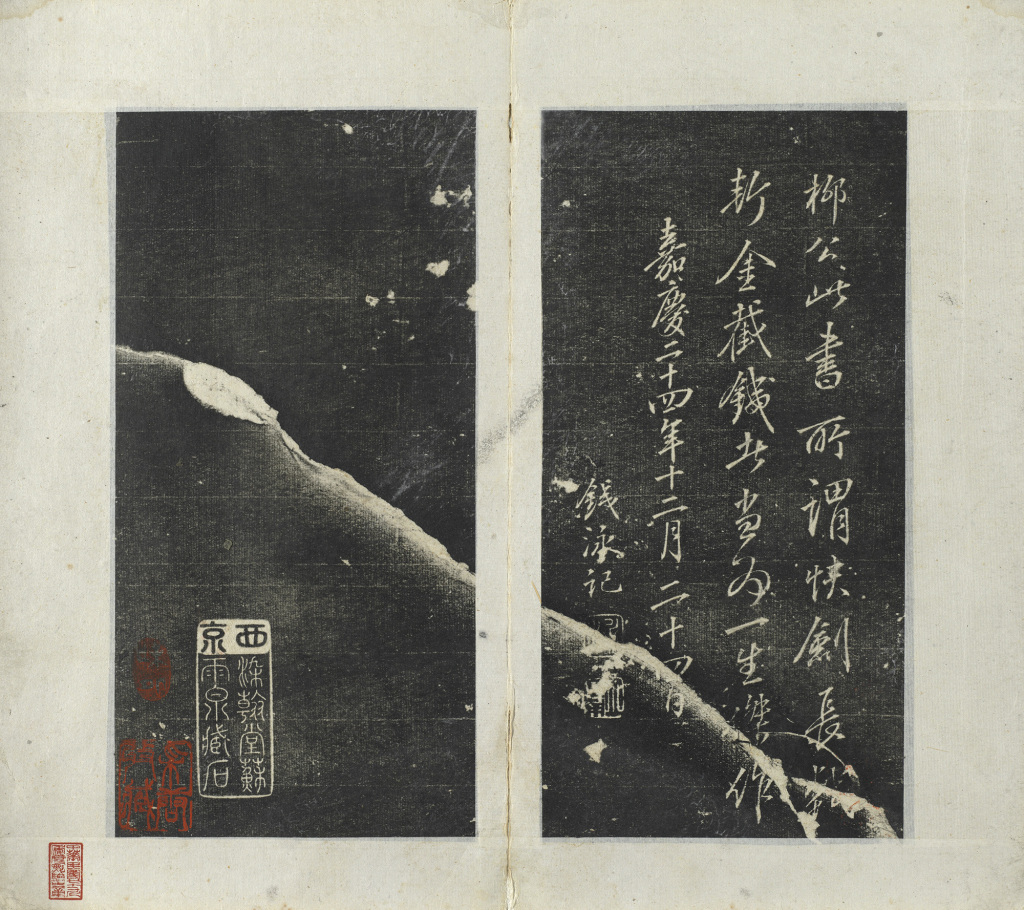 柳公此書所謂快劍長
斬金截鐵者當為一生傑作
嘉慶二十四年十二月二十四日
錢泳記
西京
染翰堂蘇
雨泉藏石